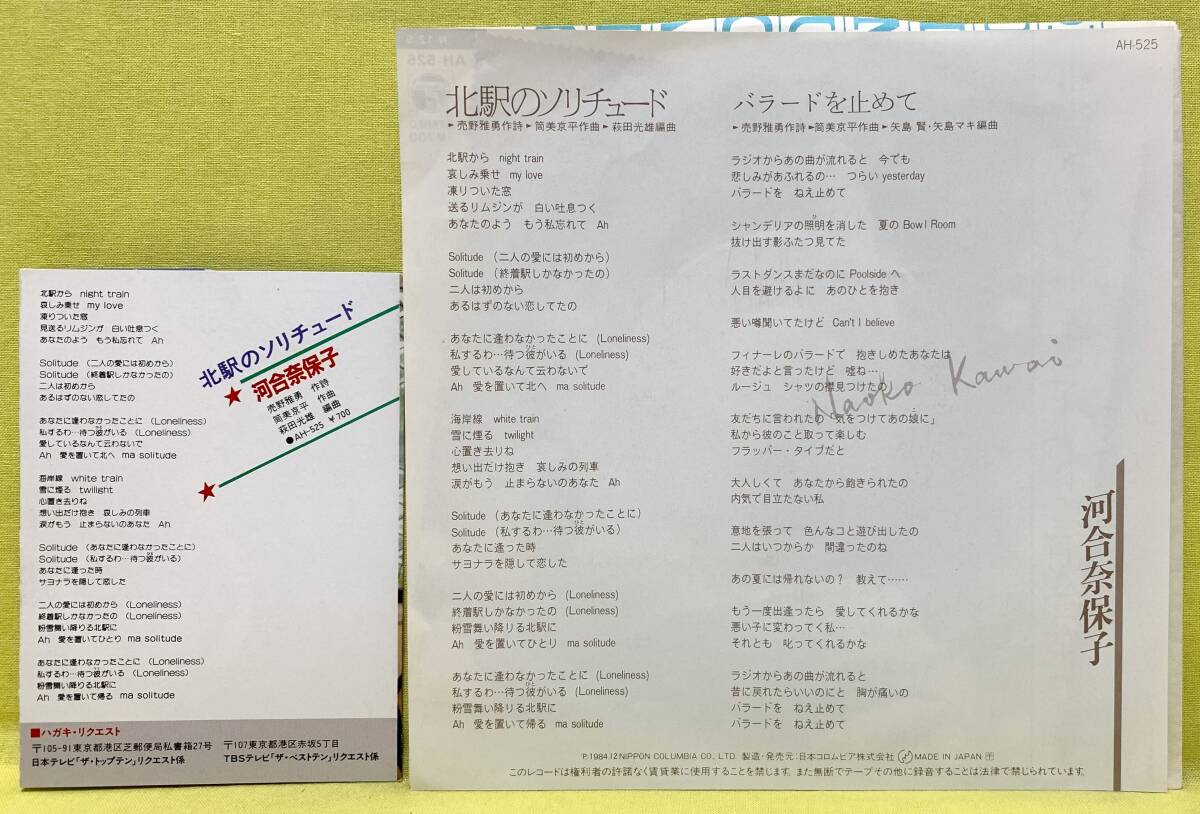 北駅から night train
哀しみ乗せ my love
凍りついた窓
見送るリムジンが 白い吐息つく
あなたのよう もう私忘れて Ah
Solitude (二人の愛には初めから)
Solitude (終着駅しかなかったの)
二人は初めから
あるはずのない恋してたの
あなたに逢わなかったことに (Loneliness)
私するわ…待つ彼がいる (Loneliness)
愛しているなんて云わないで
Ah 愛を置いて北へ ma solitude
海岸線 white train
雪に煙る twilight
心置き去りね
想い出だけ抱き 哀しみの列車
涙がもう 止まらないのあなた Ah
Solitude (あなたに逢わなかったことに)
Solitude (私するわ…待つ彼がいる)
あなたに逢った時
サヨナラを隠して恋した
二人の愛には初めから (Loneliness)
終着駅しかなかったの (Loneliness)
粉雪舞い降りる北駅に
Ah 愛を置いてひとり ma solitude
あなたに逢わなかったことに (Loneliness)
私するわ…待つ彼がいる (Loneliness)
粉雪舞い降りる北駅に
Ah 愛を置いて帰る ma solitude
北駅のソリチュード
★河合奈保子
売野雅勇 作詩
筒美京平 作曲
萩田光雄 編曲
●AH-525 ¥700
★
■ハガキ・リクエスト
〒105-91東京都港区芝郵便局私書箱27号
日本テレビ「ザ・トップテン」リクエスト係
〒107東京都港区赤坂5丁目
TBSテレビ「ザ・ベストテン」リクエスト係
AH-525
北駅のソリチュード
►売野雅勇作詩►筒美京平作曲►萩田光雄編曲
北駅から night train
哀しみ乗せ my love
凍りついた窓
送るリムジンが 白い吐息つく
あなたのよう もう私忘れて Ah
Solitude (二人の愛には初めから)
Solitude (終着駅しかなかったの)
二人は初めから
あるはずのない恋してたの
あなたに逢わなかったことに (Loneliness)
私するわ…待つ彼がいる (Loneliness)
愛しているなんて云わないで
Ah 愛を置いて北へ ma solitude
海岸線 white train
雪に煙る twilight
心置き去りね
想い出だけ抱き 哀しみの列車
涙がもう 止まらないのあなた Ah
Solitude (あなたに逢わなかったことに)
Solitude (私するわ…待つ彼がいる)
あなたに逢った時
サヨナラを隠して恋した
二人の愛には初めから (Loneliness)
終着駅しかなかったの (Loneliness)
粉雪舞い降りる北駅に
Ah 愛を置いてひとり ma solitude
あなたに逢わなかったことに (Loneliness)
私するわ…待つ彼がいる (Loneliness)
粉雪舞い降りる北駅に
Ah 愛を置いて帰る ma solitude
バラードを止めて
►売野雅勇作詩►筒美京平作曲►矢島 賢・矢島マキ編曲
ラジオからあの曲が流れると 今でも
悲しみがあふれるの… つらい yesterday
バラードを ねえ止めて
シャンデリアの照明を消した 夏の Bowl Room
抜け出す影ふたつ見てた
ラストダンスまだなのに Poolside へ
人目を避けるよに あのひとを抱き
悪い噂聞いてたけど Can't I believe
フィナーレのバラードで 抱きしめたあなたは
好きだよと言ったけど 嘘ね…
ルージュ シャツの襟見つけたの
友だちに言われたの「気をつけてあの娘に」
私から彼のこと取って楽しむ
フラッパー・タイプだと
大人しくて あなたから飽きられたの
内気で目立たない私
意地を張って 色んなコと遊び出したの
二人はいつからか 間違ったのね
あの夏には帰れないの? 教えて……
もう一度出逢ったら 愛してくれるかな
悪い子に変わってく私…
それとも 叱ってくれるかな
ラジオからあの曲が流れると
昔に戻れたらいいのにと 胸が痛いの
バラードを ねえ止めて
バラードを ねえ止めて
Naoko Kawai
河合奈保子
℗1984.12 NIPPON COLUMBIA CO., LTD. 製造・発売元:日本コロムビア株式会社 MADE IN JAPAN
このレコードは権利者の許諾なく賃貸業に使用することを禁じます。また無断でテープその他に録音することは法律で禁じられています。